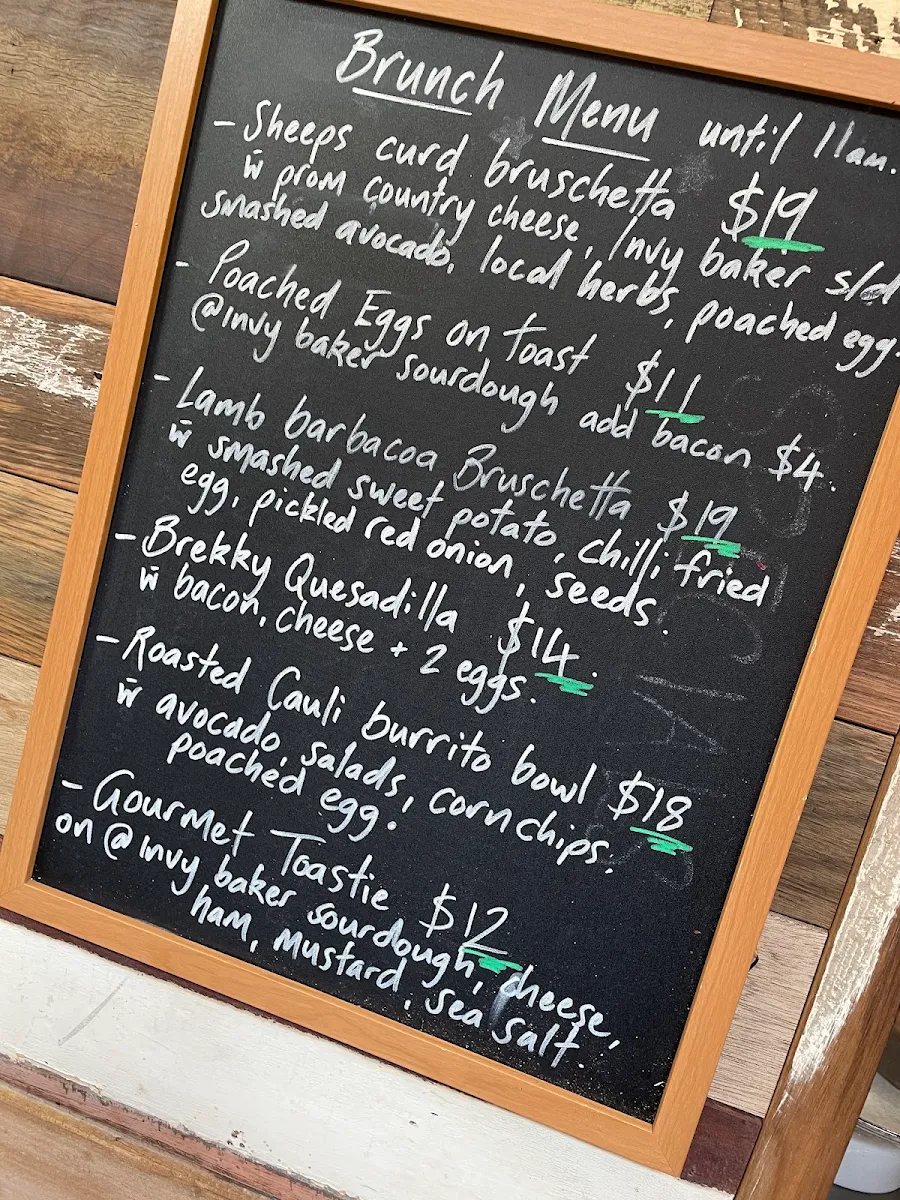 Brunch Menu until 11am.
- Sheeps curd bruschetta $19
w̄ prom country cheese, Invy baker s/d
smashed avocado, local herbs, poached egg.
- Poached Eggs on toast $11
@invy baker sourdough add bacon $4.
- Lamb barbacoa Bruschetta $19
w̄ smashed sweet potato, chilli fried
egg, pickled red onion, seeds.
- Brekky Quesadilla $14.
w̄ bacon, cheese + 2 eggs.
- Roasted Cauli burrito bowl $18
w̄ avocado, salads, corn chips,
poached egg.
- Gourmet Toastie $12
on @invy baker sourdough, cheese,
ham, mustard, sea salt.